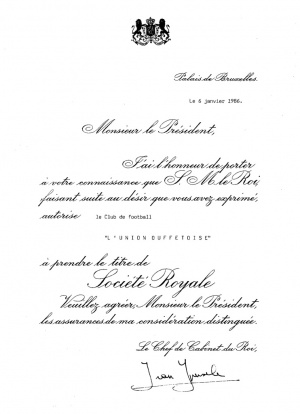 Palais de Bruxelles.
Le 6 janvier 1986.
Monsieur le Président,
J'ai l'honneur de porter
à votre connaissance que S. M. le Roi,
faisant suite au désir que vous avez exprimé,
autorise le Club de football
"L'UNION DUFFETOISE"
à prendre le titre de
Société Royale
Veuillez agréer, Monsieur le Président,
les assurances de ma considération distinguée.
Le Chef de Cabinet du Roi,